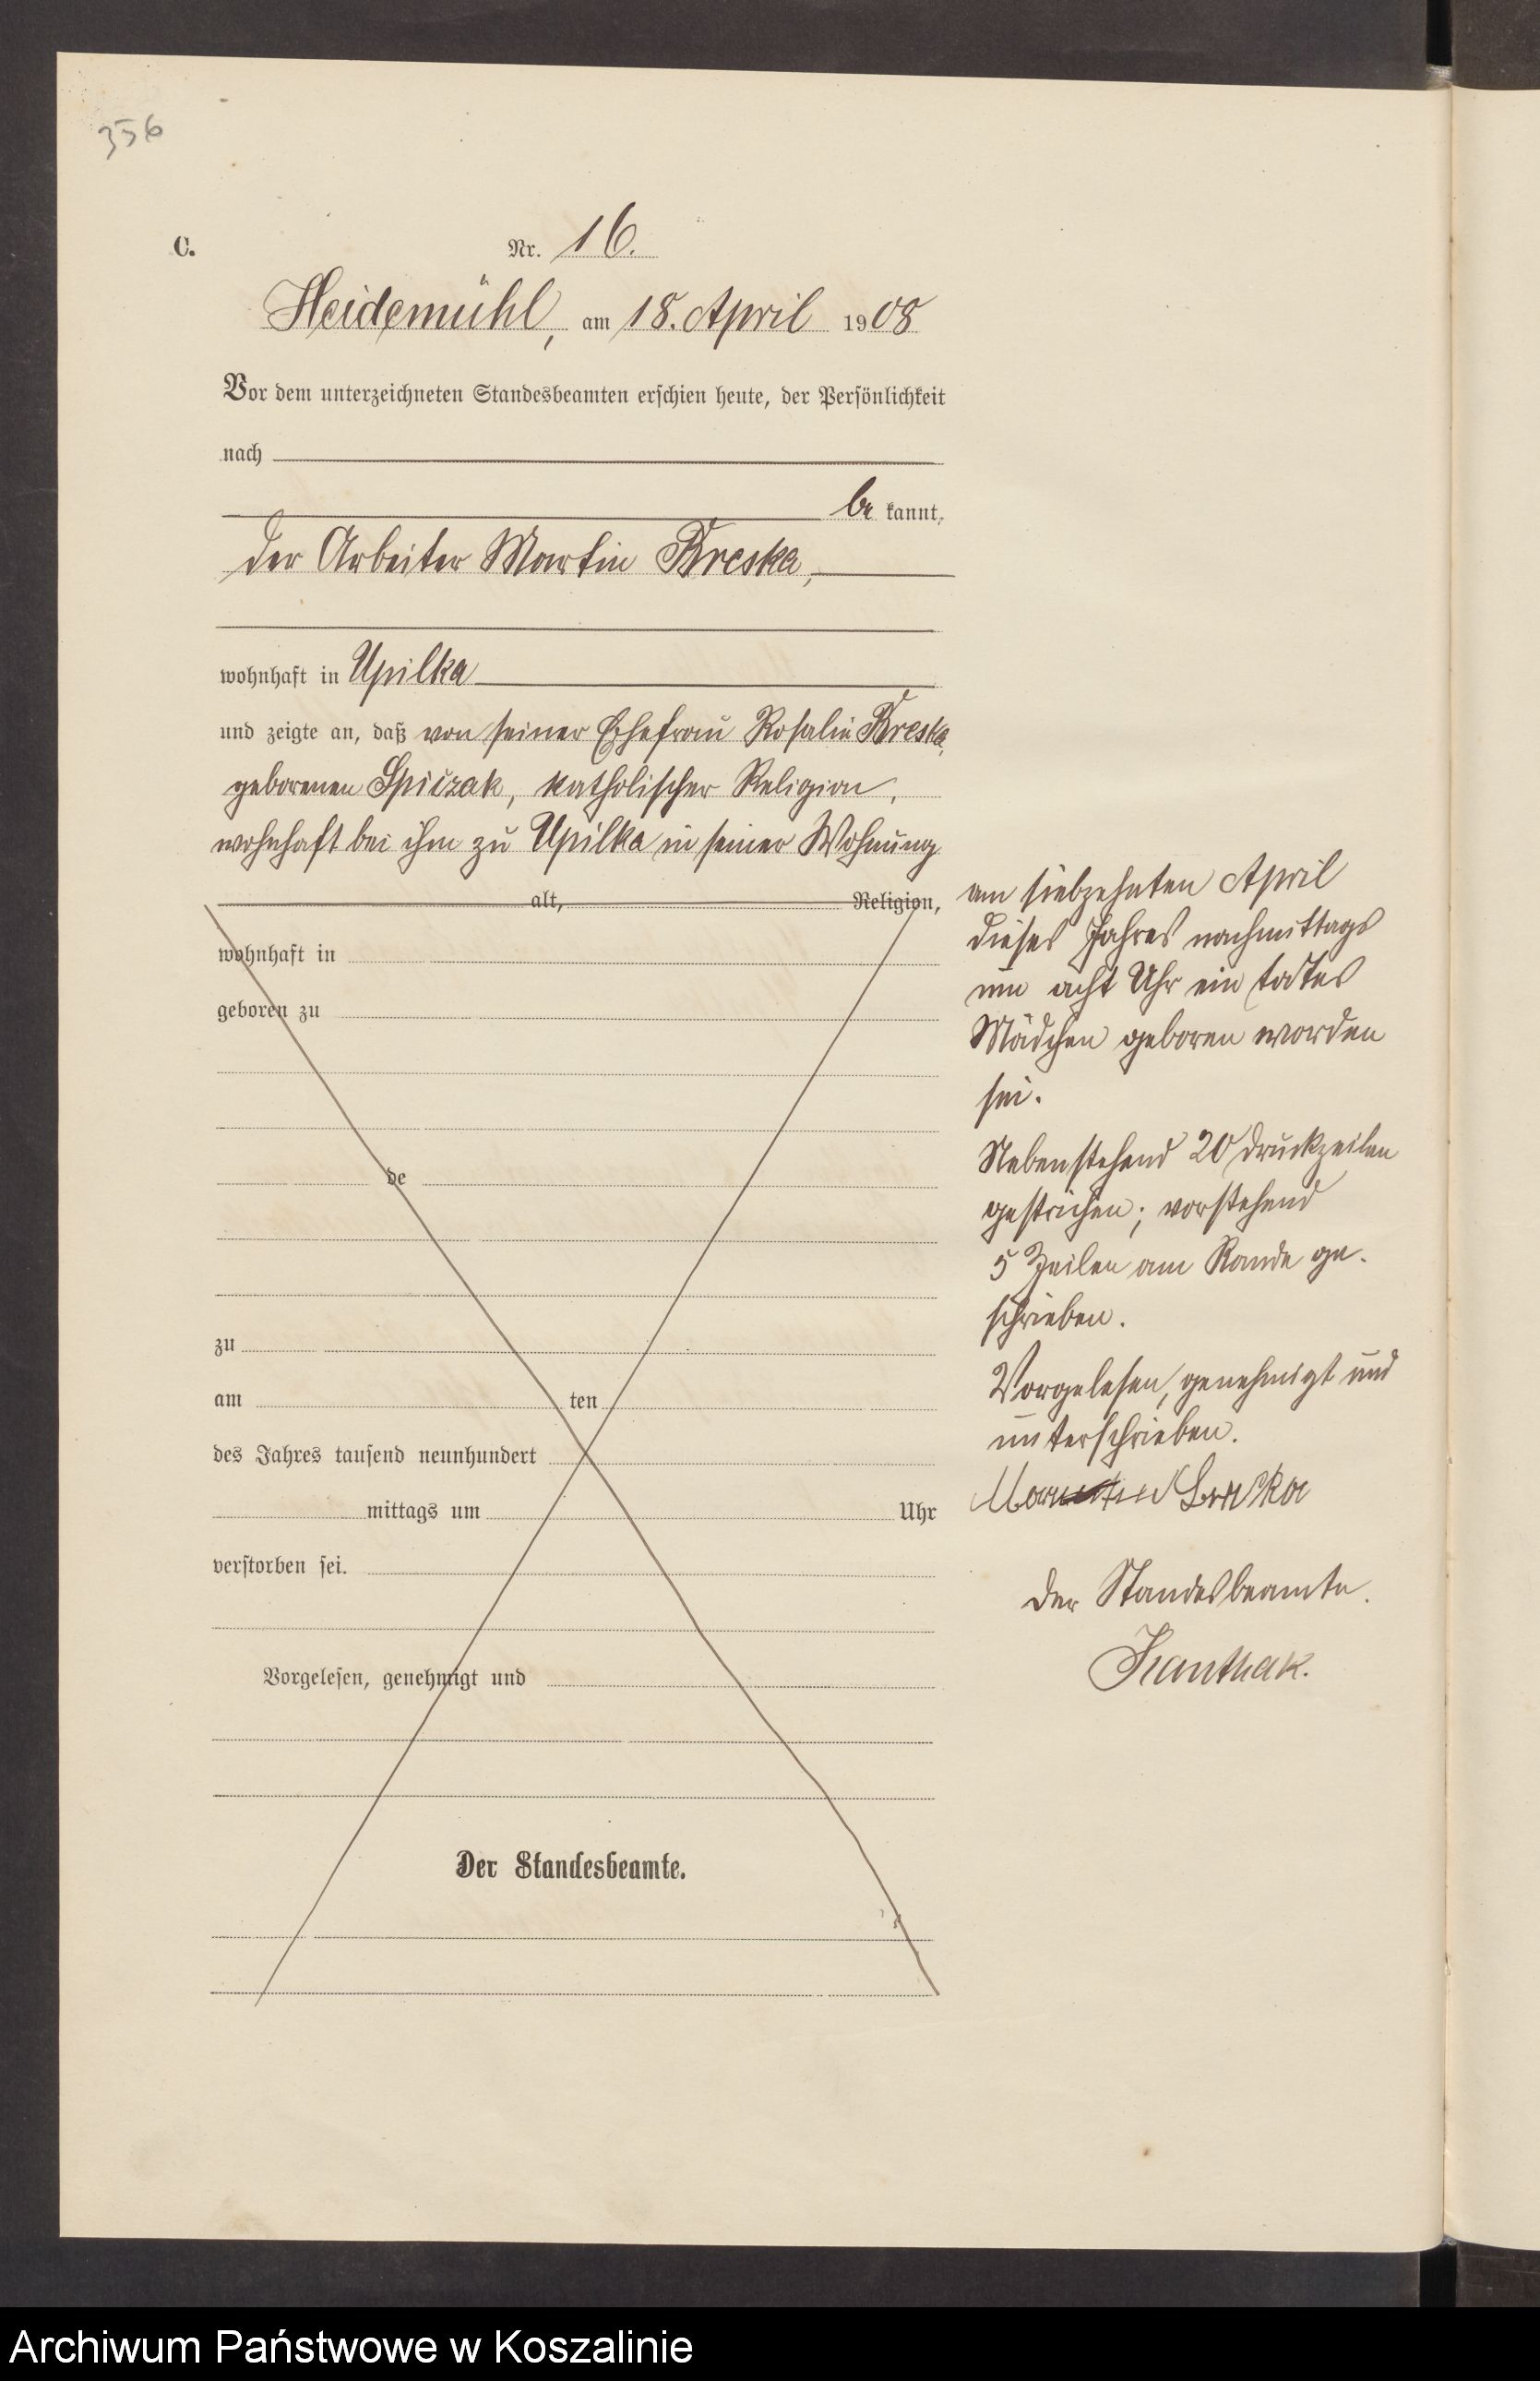 356
C.
Nr. 16.
Heidemühl, am 18. April 1908
Vor dem unterzeichneten Standesbeamten erschien heute, der Persönlichkeit
nach
be kannt,
der Arbeiter Martin Breska,
wohnhaft in Upilka
und zeigte an, daß von seiner Ehefrau Rosalie Breska,
geborenen Spiczak, katholischer Religion,
wohnhaft bei ihm zu Upilka in seiner Wohnung
alt, Religion,
wohnhaft in
geboren zu
de
zu
am ten
des Jahres tausend neunhundert
mittags um Uhr
verstorben sei.
Vorgelesen, genehmigt und
Der Standesbeamte.
am siebzehnten April
dieses Jahres nachmittags
um acht Uhr ein todtes
Mädchen geboren worden
sei.
Nebenstehend 20 Druckzeilen
gestrichen; vorstehend
5 Zeilen am Rande ge-
schrieben.
Vorgelesen, genehmigt und
unterschrieben.
Der Standesbeamte.
Kanthak.
Archiwum Państwowe w Koszalinie